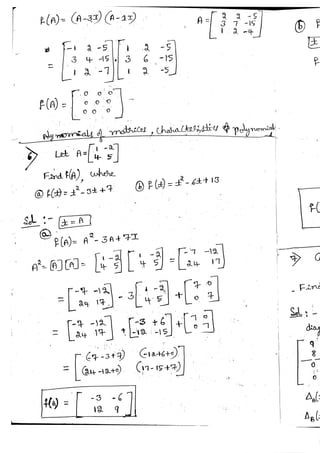 f(A) = (A-3I) (A-1I)
A = [2 2 -5
3 7 -15
1 2 -4]
= [-1 2 -5
3 4 -15
1 2 -7] . [1 2 -5
3 6 -15
1 2 -5]
f(A) = [0 0 0
0 0 0
0 0 0]
Polynomials of matrices, characteristics of polynomial
6) Let A = [1 -2
4 5]
Find f(A), where
(a) f(t) = t² - 3t + 7 (b) f(t) = t² - 6t + 13
Sol :- t = A
(a) f(A) = A² - 3A + 7I
A² = [A][A] = [1 -2
4 5] [1 -2
4 5] = [-7 -12
24 17]
= [-7 -12
24 17] - 3 [1 -2
4 5] + [7 0
0 7]
= [-7 -12
24 17] + [-3 +6
-12 -15] + [7 0
0 7]
= [(-7-3+7) (-12+6+0)
(24-12+0) (17-15+7)]
f(A) = [-3 -6
12 9]
(b) f
t
f
f(
7)
- Find
Sol :-
diag
9
8
0
0
Δ_A(
Δ_B(